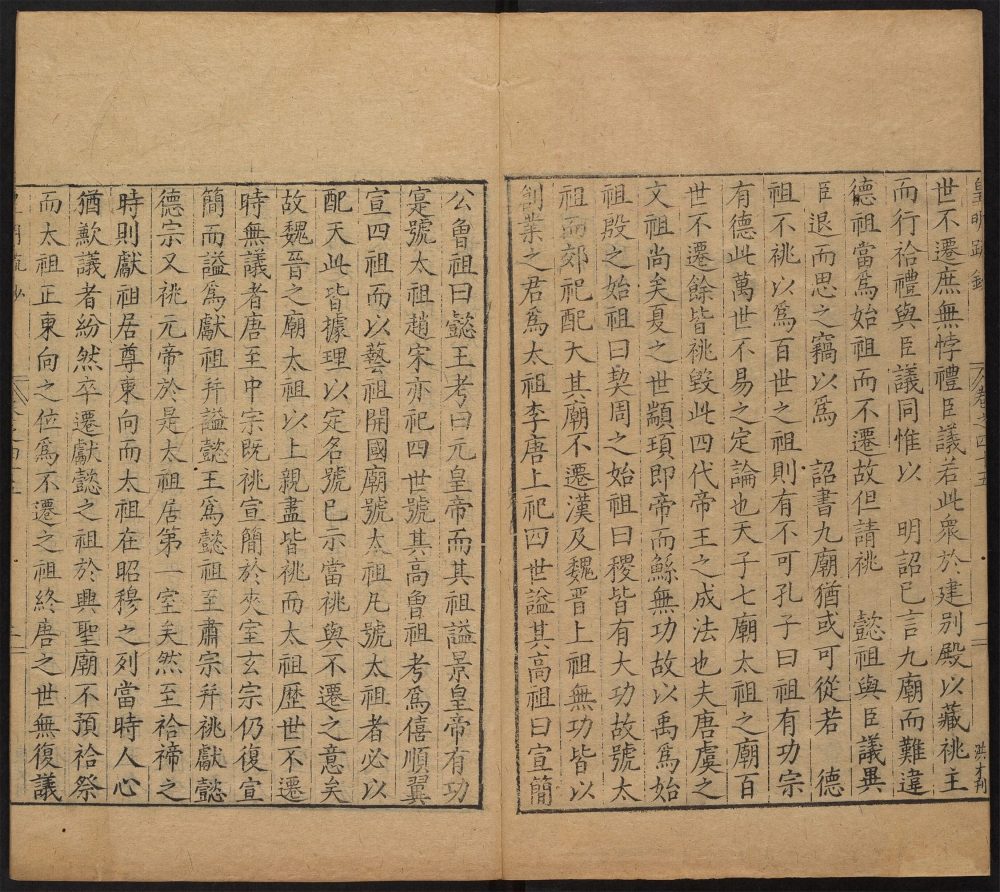 皇明疏鈔
卷之四十五
一
世不遷庶無悖禮臣議若此衆於建別殿以藏祧主
而行祫禮與臣議同惟以 明詔已言九廟而難違
德祖當爲始祖而不遷故但請祧 懿祖與臣議異
臣退而思之竊以爲 詔書九廟猶或可從若 德
祖不祧以爲百世之祖則有不可孔子曰祖有功宗
有德此萬世不易之定論也天子七廟太祖之廟百
世不遷餘皆祧毀此四代帝王之成法也夫唐虞之
文祖尚矣夏之世顓頊即帝而鯀無功故以禹爲始
祖殷之始祖曰契周之始祖曰稷皆有大功故號太
祖而郊祀配天其廟不遷漢及魏晉上祖無功皆以
創業之君爲太祖李唐上祀四世謚其高祖曰宣簡
公魯祖曰懿王考曰元皇帝而其祖謚景皇帝有功
寔號太祖趙宋亦祀四世號其高魯祖考爲僖順翼
宣四祖而以藝祖開國廟號太祖凡號太祖者必以
配天此皆據理以定名號已示當祧與不遷之意矣
故魏晉之廟太祖以上親盡皆祧而太祖歷世不遷
時無議者唐至中宗既祧宣簡於夾室玄宗仍復宣
簡而謚爲獻祖幷謚懿王爲懿祖至肅宗幷祧獻懿
德宗又祧元帝於是太祖居第一室矣然至祫禘之
時則獻祖居尊東向而太祖在昭穆之列當時人心
猶歉議者紛然卒遷獻懿之祖於興聖廟不預祫祭
而太祖正東向之位爲不遷之祖終唐之世無復議